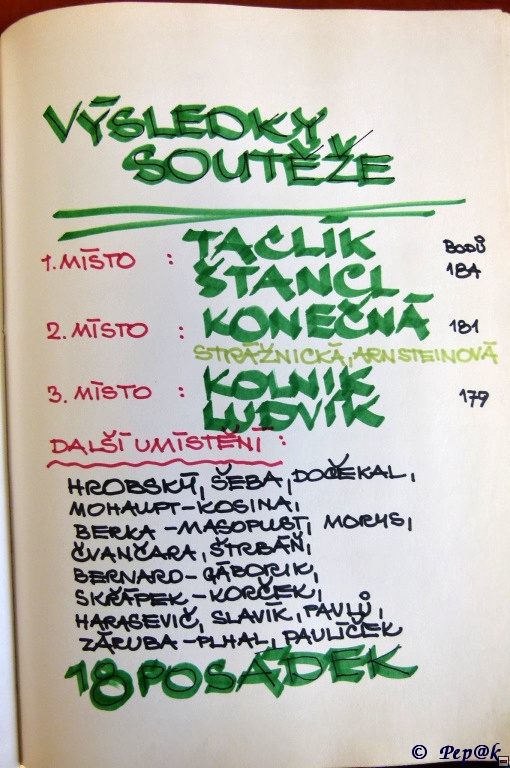 VÝSLEDKY
SOUTĚŽE
1. MÍSTO : TACLÍK BODŮ
ŠTANCL 184
2. MÍSTO : KONEČNÁ 181
STRÁŽNICKÁ, ARNSTEINOVÁ
3. MÍSTO : KOLNIK 179
LUDVÍK
DALŠÍ UMÍSTĚNÍ :
HROBSKÝ, ŠEBA, DOČEKAL,
MOHAUPT-KOSINA,
BERKA-MASOPUST, MORYS,
ČVANČARA, ŠTRBÁŇ,
BERNARD-GÁBORIK,
SKŘÁPEK-KORČEK,
HARASEVIČ, SLAVÍK, PAVLŮ,
ZÁRUBA-PLHAL, PAULÍČEK
18 POSÁDEK
© Pep@k